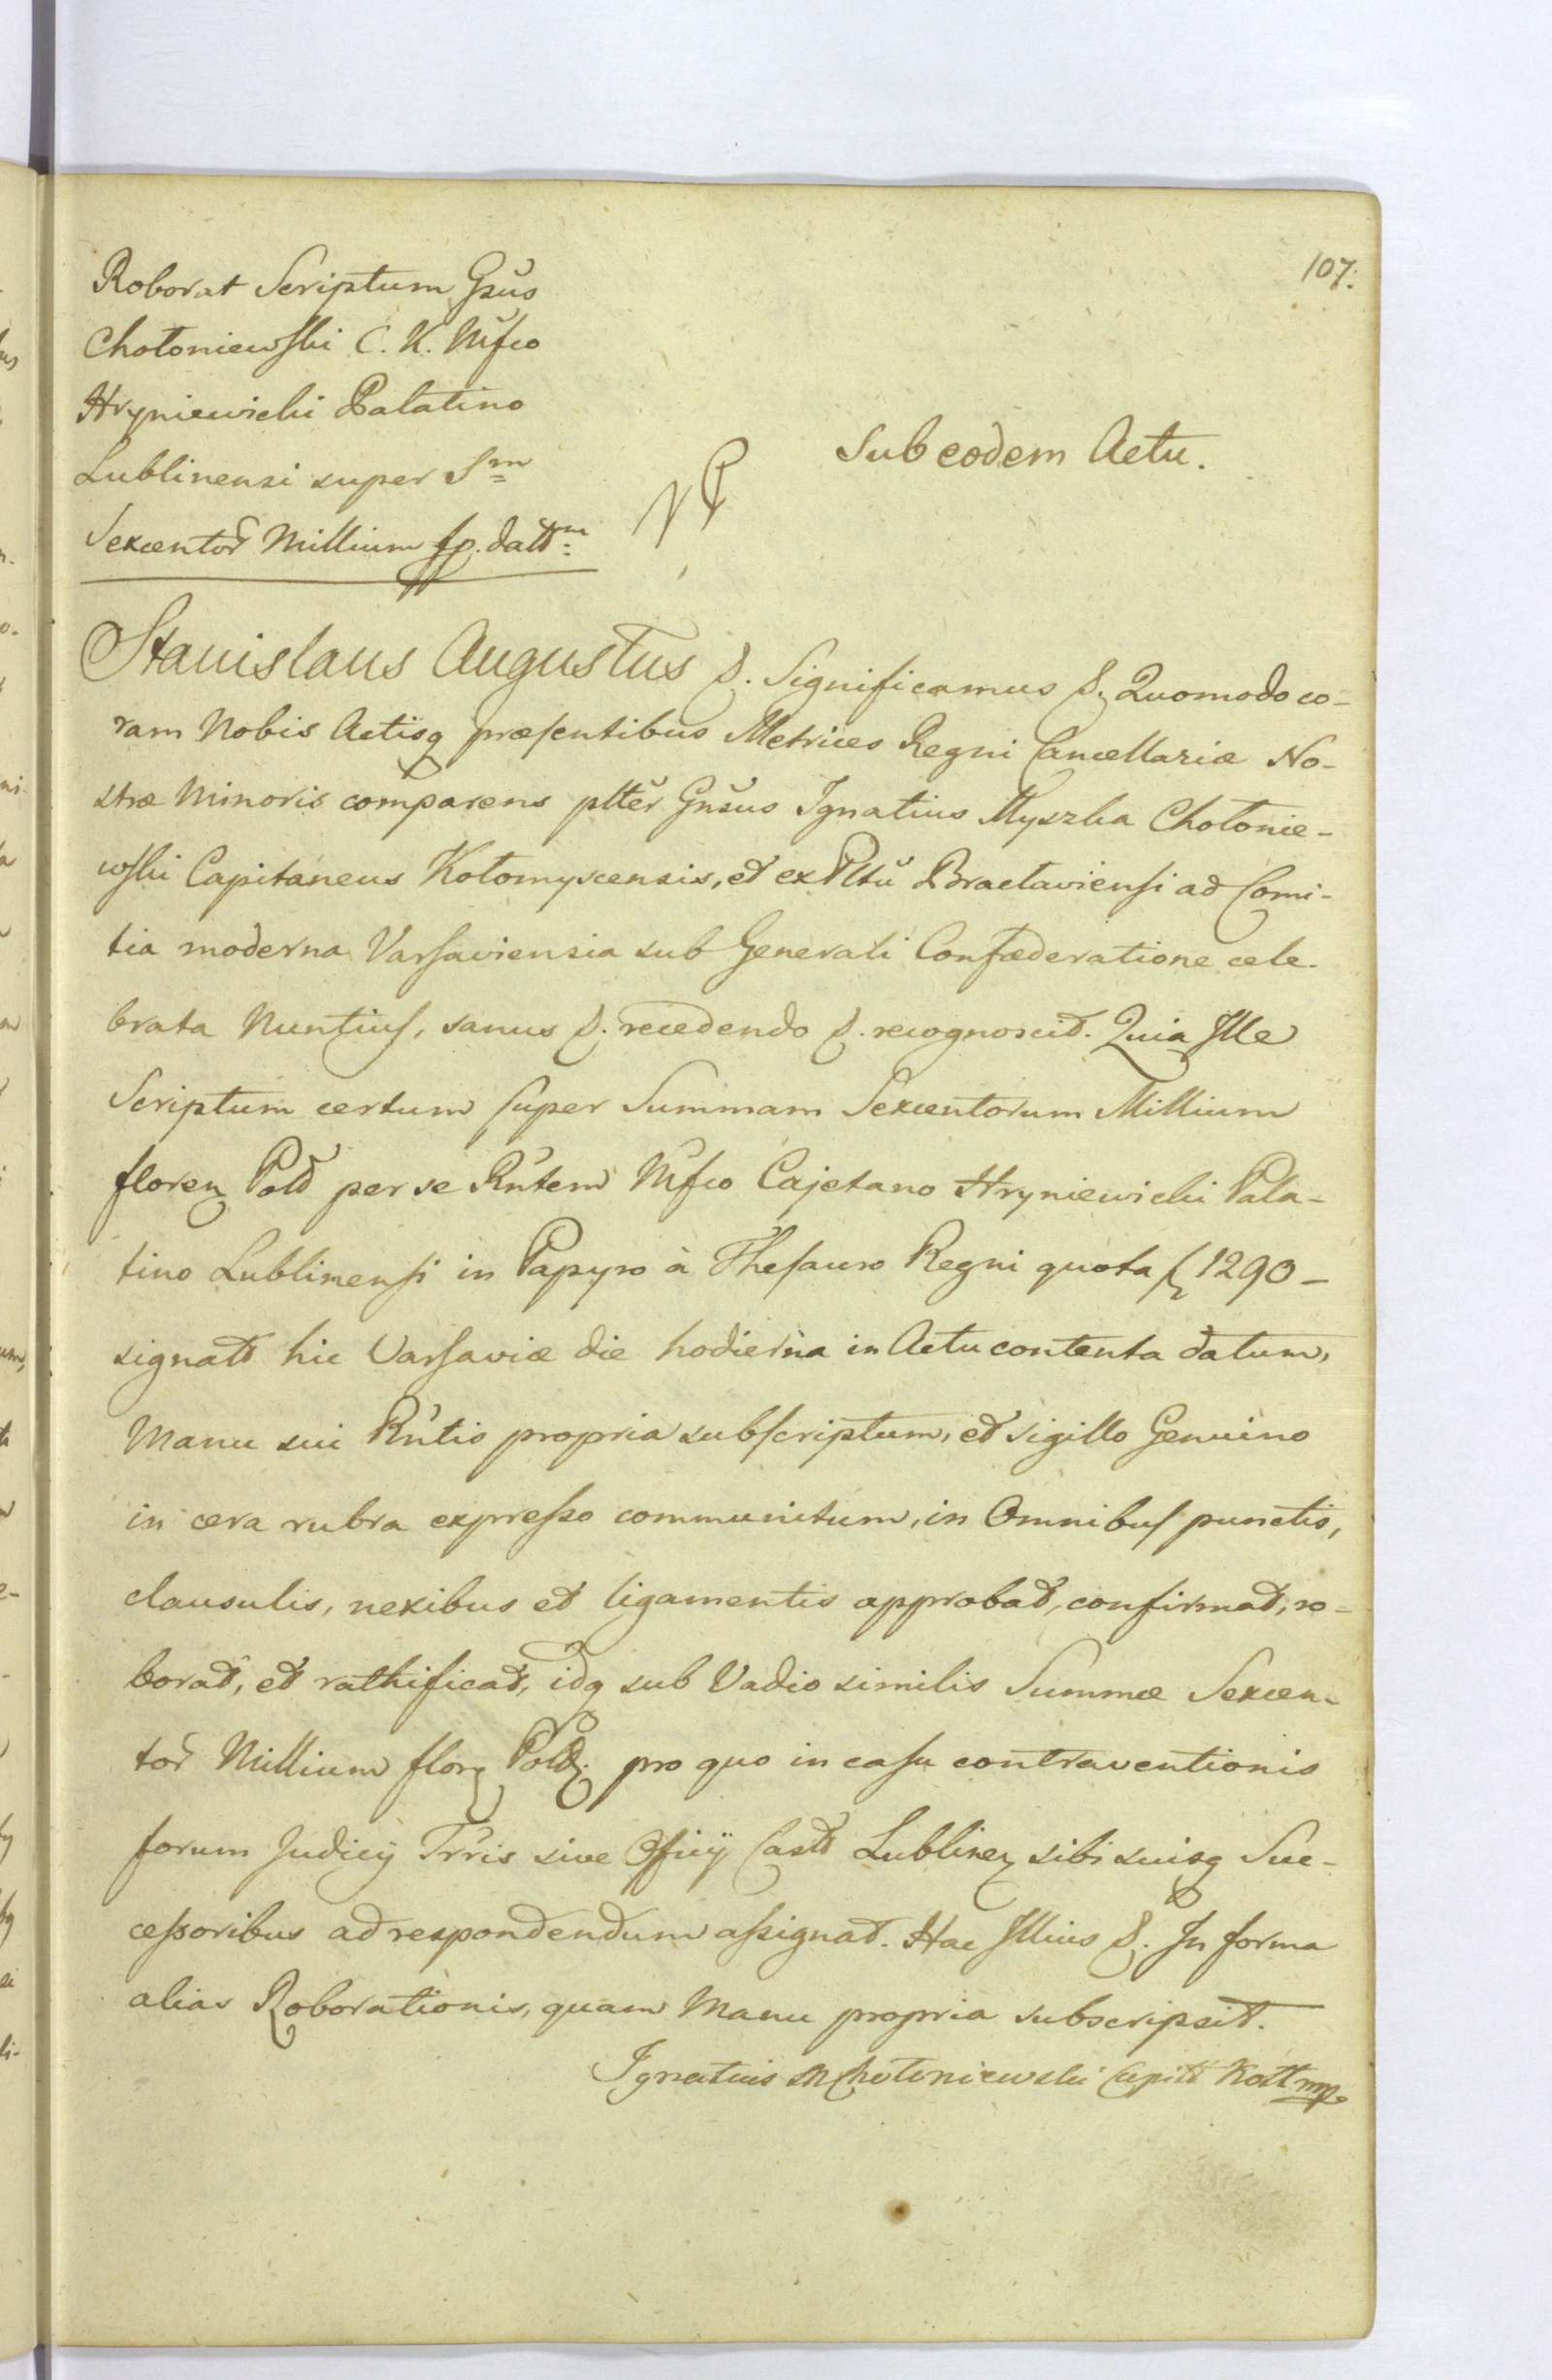 107.
Roborat Scriptum Gsŭs
Chołoniewski C. K. Mŭfco
Hryniewicki Palatino
Lublinensi super Sm
Sexcentor Millium fp. dattm
Sub eodem Actu.
Stanislaus Augustus &. Significamus &. Quomodo co-
ram Nobis Actisq præsentibus Metrices Regni Cancellariæ No-
stræ Minoris comparens pltĕr Gnsus Ignatius Myszka Chołonie-
wski Capitaneus Kołomyscensis, et ex Pltŭ Braclaviensi ad Comi-
tia moderna Varsaviensia sub Generali Confæderatione cele-
brata Nuntius, sanus &. recedendo &. recognoscit. Quia Ille
Scriptum certum super Summam Sexcentorum Millium
floren Pold per se Rntem Mfco Cajetano Hryniewicki Pala-
tino Lublinensi in Papyro à Thesauro Regni quota f 1290 -
signatt hic Varsaviæ die hodierna in Actu contenta datum,
Manu sui Rntis propria subscriptum, et sigillo Genuino
in cera rubra expresso communitum, in Omnibus punctis,
clausulis, nexibus et ligamentis approbat, confirmat, ro-
borat, et rathificat, idq sub Vadio similis Summæ Sexcen-
tor Millium flor Pold. pro quo in casu contraventionis
forum Judicij Trris sive Officij Castr Lublinen sibi suisq Suc-
cessoribus ad respondendum assignat. Hac Illius &. In forma
alias Roborationis, quam Manu propria subscripsit.
Ignatius M Chołoniewski Capitt Kołł mp.